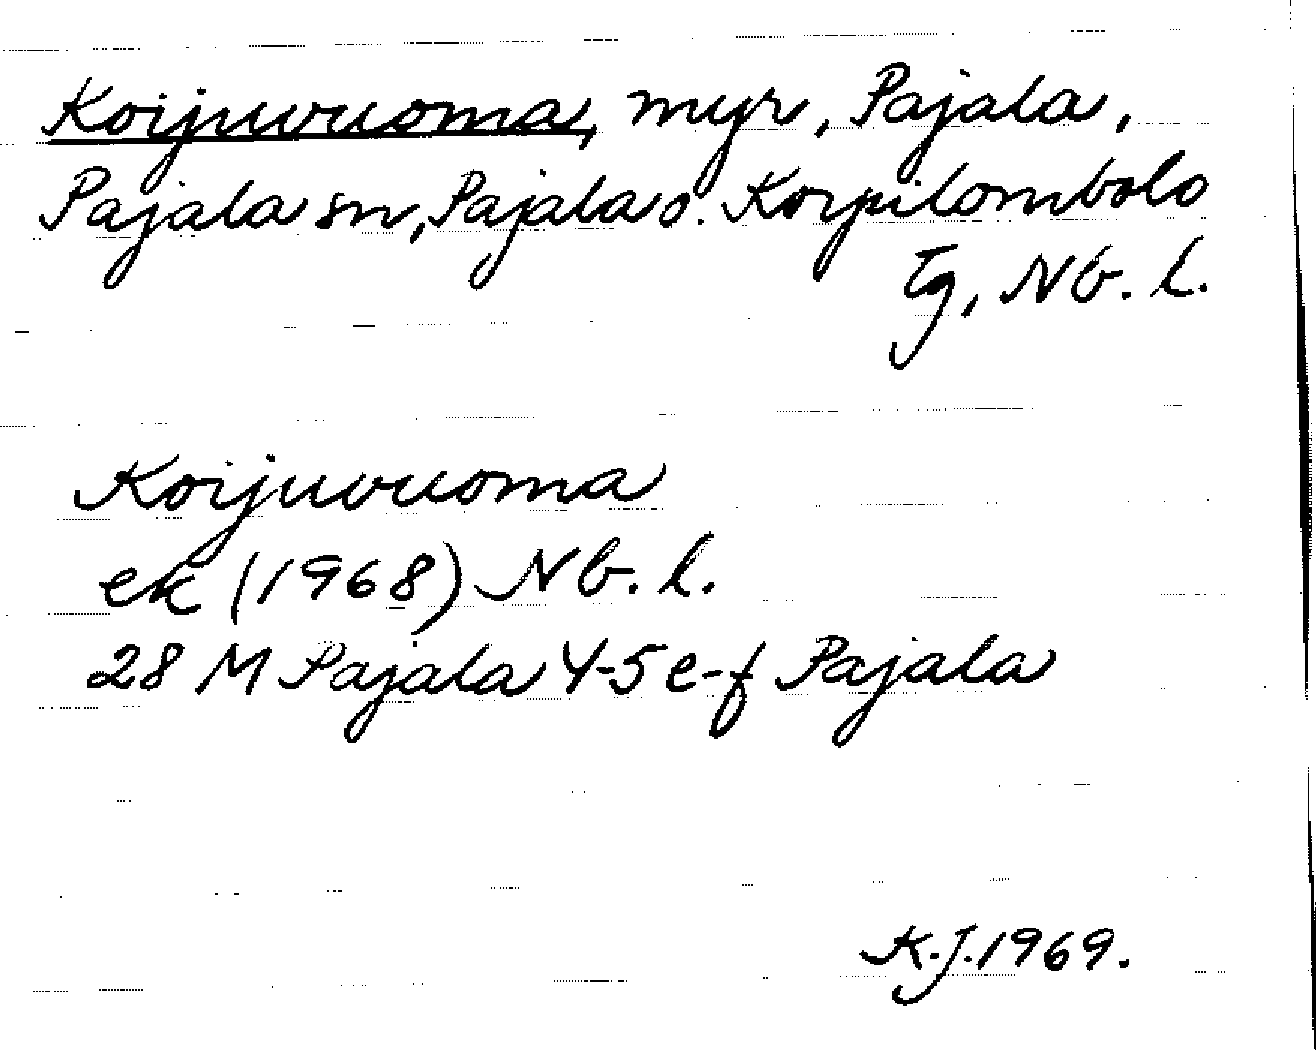 Koijuvuoma, myr, Pajala,
Pajala sn, Pajala o. Korpilombolo
tg, Nb. l.
Koijuvuoma
ek (1968) Nb. l.
28 M Pajala 4-5 e-f Pajala
K.J. 1969.